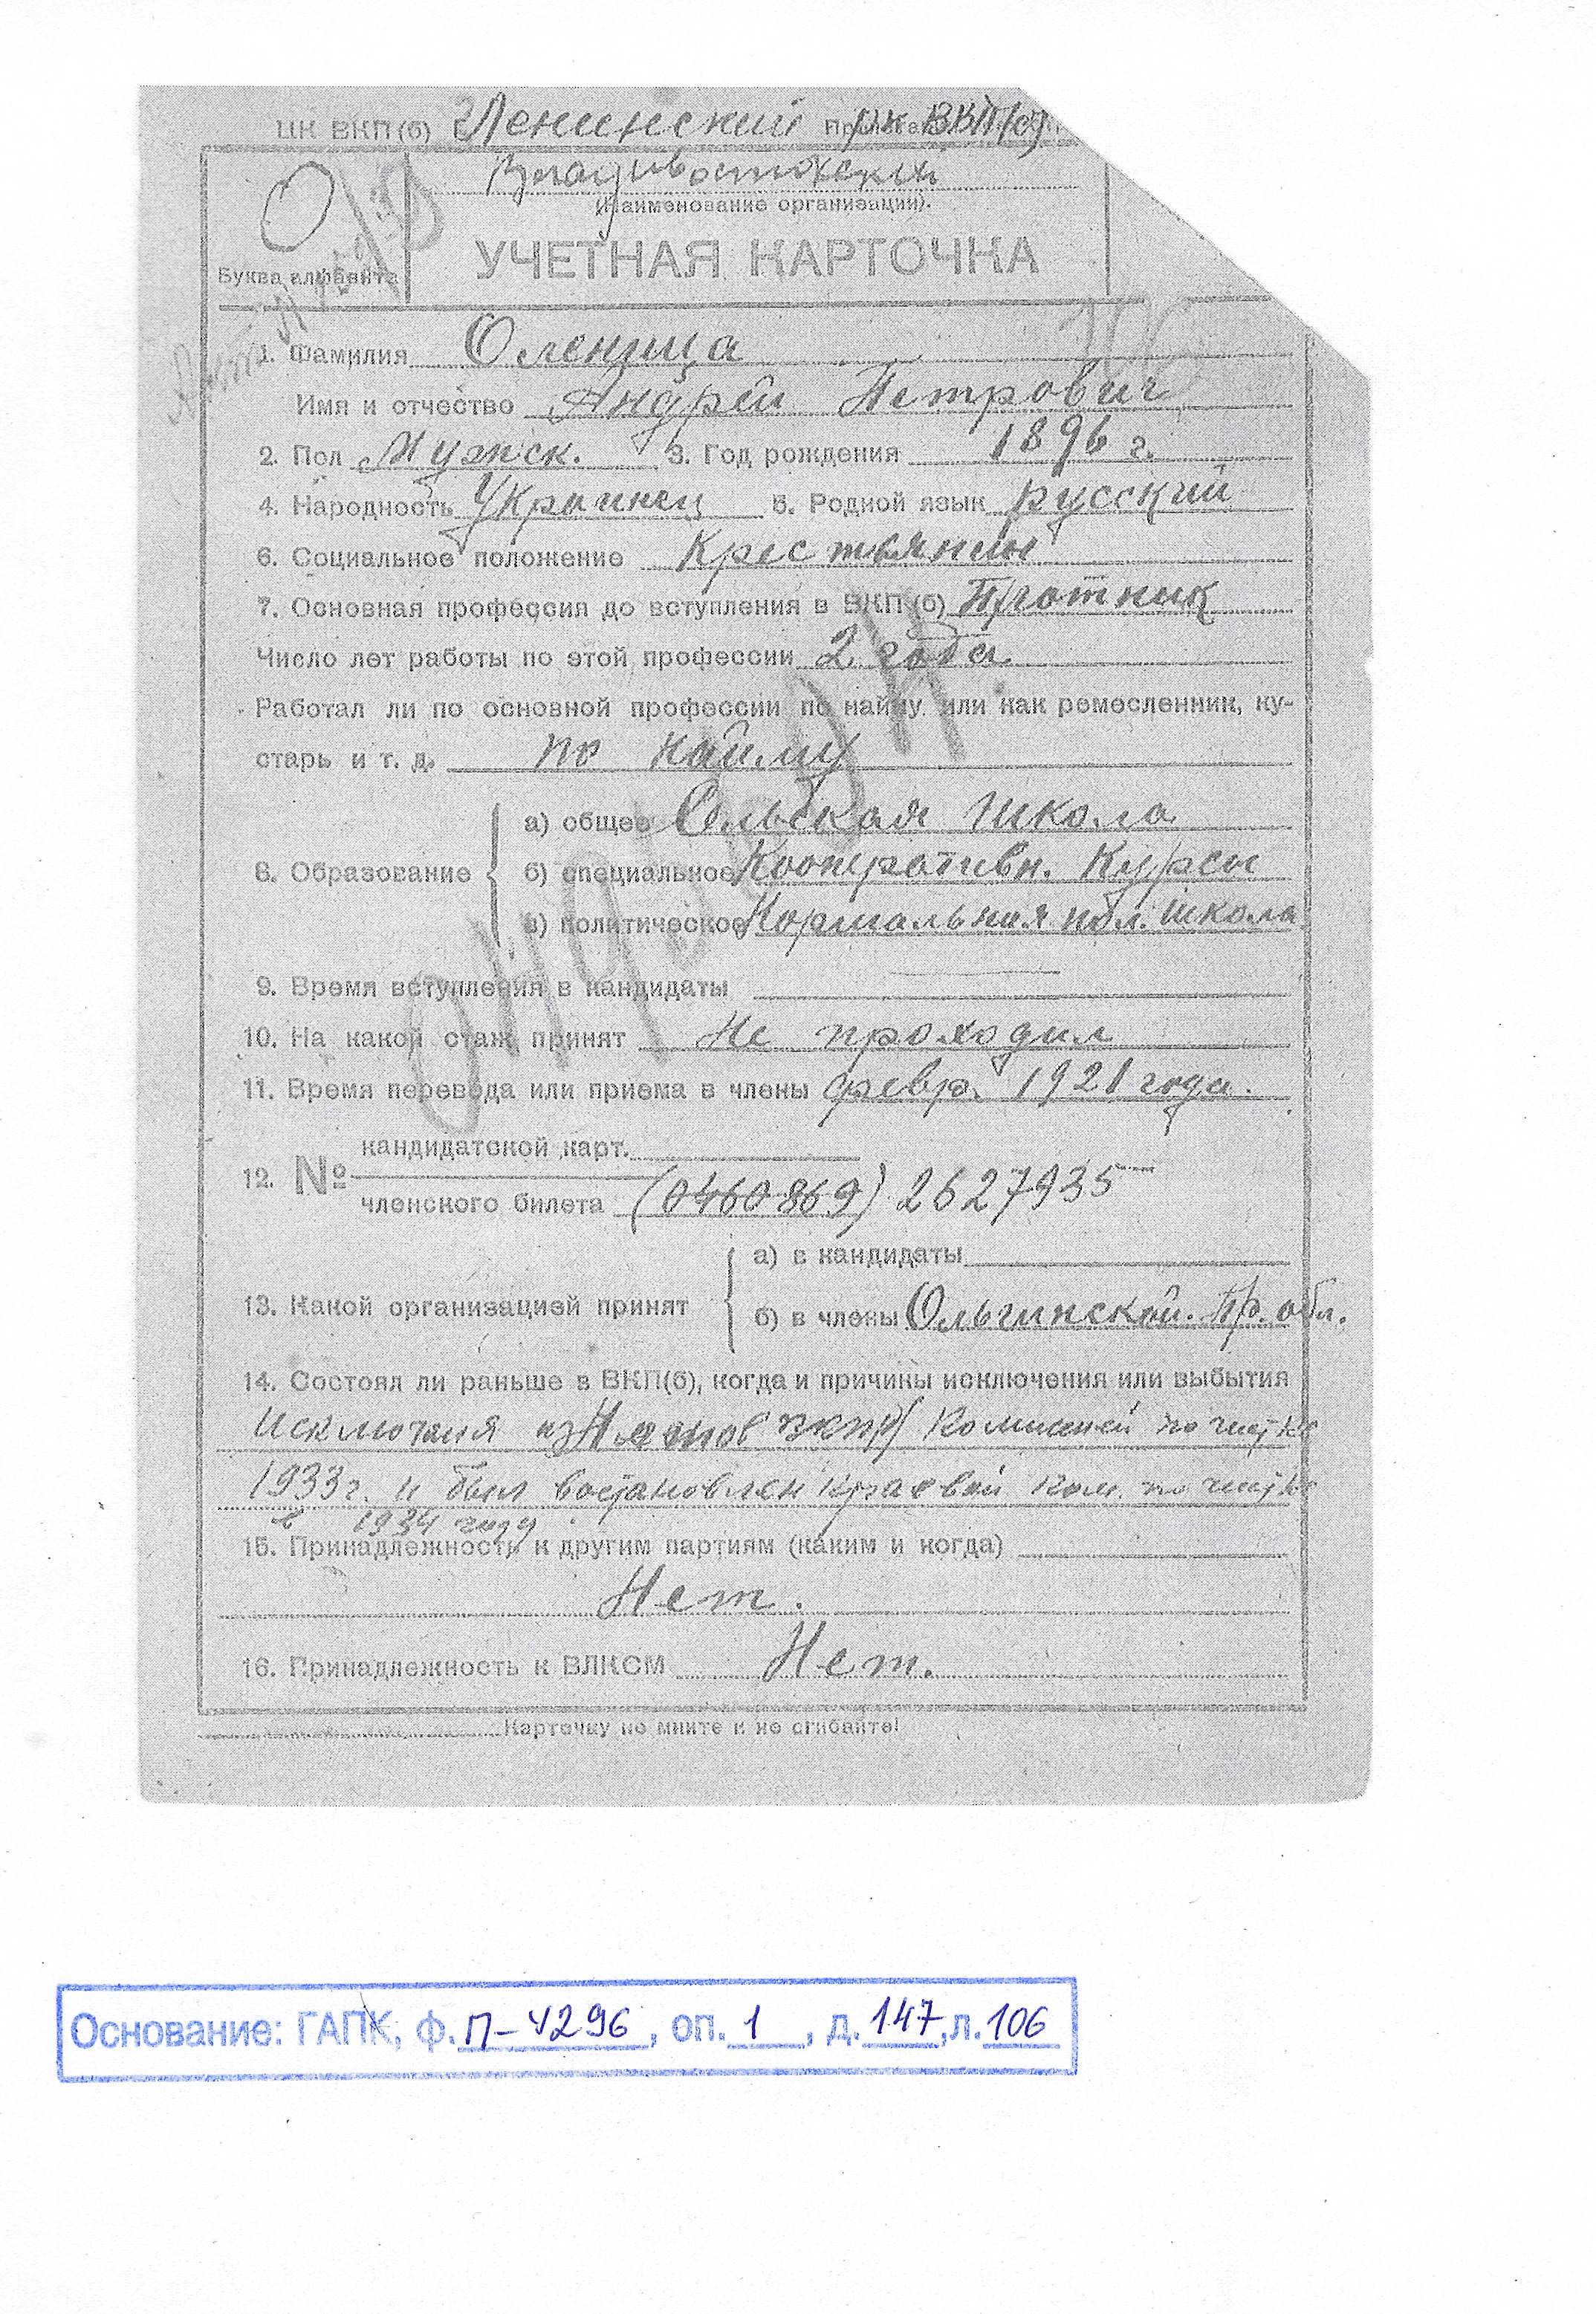 ЦК ВКП(б) Ленинский рк ВКП(б)
Владивостокский
(Наименование организации).
О
Буква алфавита
УЧЕТНАЯ КАРТОЧКА
1. Фамилия Оленица
Имя и отчество Андрей Петрович
2. Пол Мужск. 3. Год рождения 1896 г.
4. Народность Украинец 5. Родной язык русский
6. Социальное положение Крестьянин
7. Основная профессия до вступления в ВКП(б) Плотник
Число лет работы по этой профессии 2 года
Работал ли по основной профессии по найму или как ремесленник, ку-
старь и т. д. по найму
8. Образование
а) общее Сельская школа
б) специальное Кооперативн. Курсы
в) политическое Нормальная пол. школа
9. Время вступления в кандидаты
10. На какой стаж принят Не проходил
11. Время перевода или приема в члены февр. 1921 года.
12. №
кандидатской карт.
членского билета (0460869) 2627935
13. Какой организацией принят
а) в кандидаты
б) в члены Ольгинской. Пр. обл.
14. Состоял ли раньше в ВКП(б), когда и причины исключения или выбытия
из членов Комиссией по чистке
1933 г. и был востановлен Краевой ком. по чистке
в 1934 году
15. Принадлежность к другим партиям (каким и когда)
Нет.
16. Принадлежность к ВЛКСМ Нет.
Карточку не мните и не сгибайте!
Основание: ГАПК, ф. П-4296, оп. 1, д. 147, л. 106